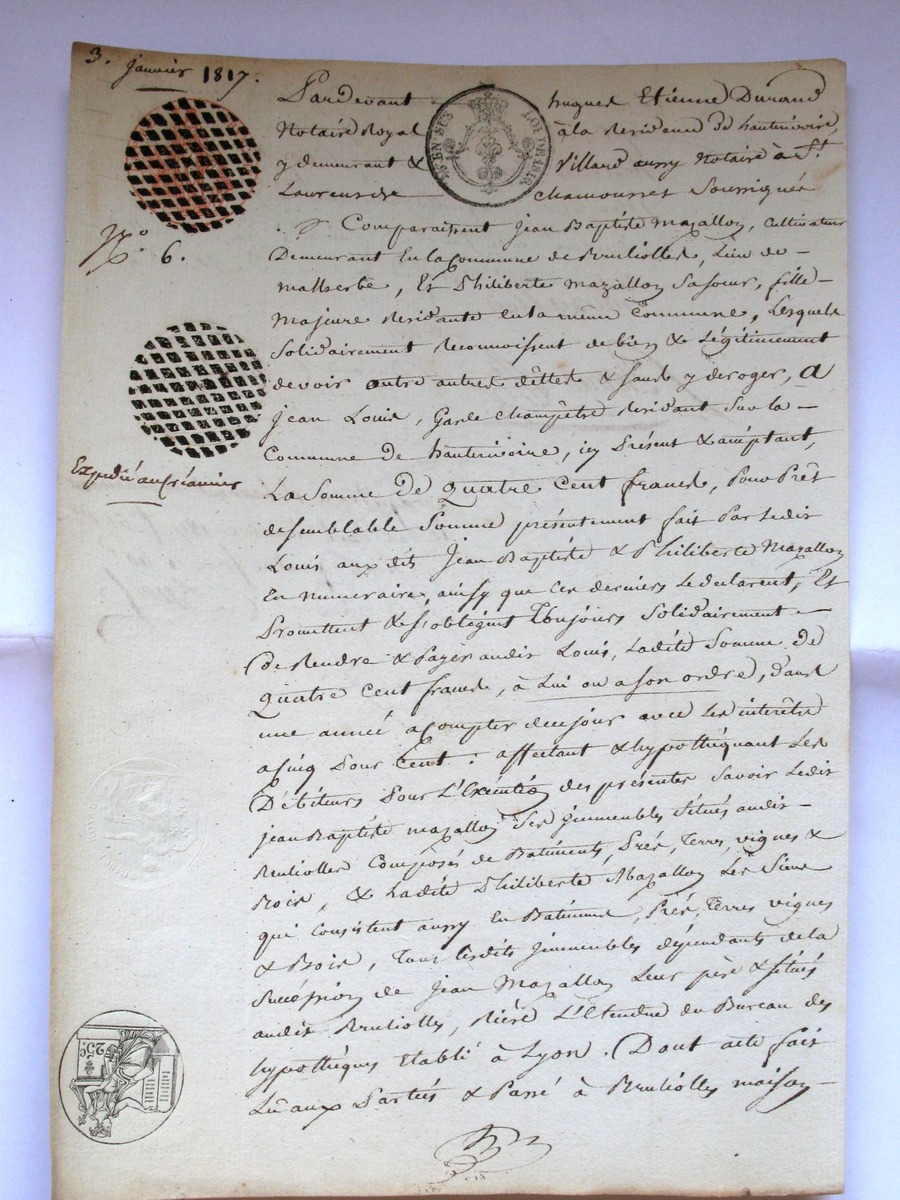 3. janvier 1817.
Pardevant hugues Etienne Durand
Notaire Royal à la Residence de hauterivoire,
y demeurant & Villard aussy Notaire à St.
Laurent de Chamousset Soussignés
EN SUS LOI DE 1816
Comparaissent Jean Baptiste Mazallon, Cultivateur
N.o 6.
Demeurant En la Commune de Brulliolles, Lieu de
malherbe, Et Philiberte Mazallon Sa Soeur, fille
Majeure Residante En la même Commune, Lesquels
Solidairement Reconnoissent de bien & Légitimement
devoir outre autres dettes & sans y deroger, A
Jean Louis, Garde Champêtre Residant Sur la
Commune de hauterivoire, icy Présent & acceptant,
Expédié au Créancier
La Somme De Quatre Cent francs, Pour Prêt
de Semblable Somme présentement fait Par Ledit
Louis aux dits Jean Baptiste & Philiberte Mazallon
En numéraire, ainsy que Ces derniers Le declarent, Et
Promettent & s'obligent Toujours Solidairement
De Rendre & Payer audit Louis, Ladite Somme De
Quatre Cent francs, à Lui ou a son ordre, dans
une année a Compter de ce jour avec Les interêts
a Cinq Pour Cent : affectant & hypothéquant Les
Débiteurs Pour L'Exécution des présentes Savoir Ledit
Jean Baptiste mazallon Ses Jmmeubles Situés audit
Brulliolles Composés de Batiments, Prés, Terres, vignes &
Bois, & Ladite Philiberte Mazallon Les Siens
qui Consistent aussy En Batiments, Prés, Terres vignes
& Bois, Tous Lesdits Jmmeubles dépendants de la
Succéssion de Jean Mazallon Leur père & Situés
audit Brulliolles, Rière L'Etendue du Bureau des
hypothéques Etabli à Lyon. Dont acte fait
25c.
Lu aux Parties & Passé à Brulliolles maison